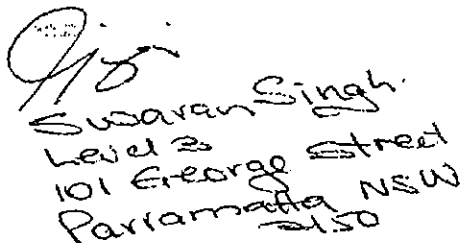 Swaran Singh.
Level 3
101 George Street
Parramatta NSW
2150